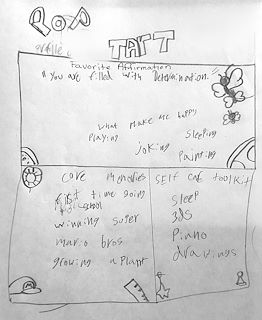 POP
ART
profile
Favorite Affirmation
"You are filled with Determination."
What make me happy
playing sleeping
joking painting
core memories
first time going
school
winning super
mario bros
growing a plant
SELF care toolkit
sleep
3ds
piano
drawings